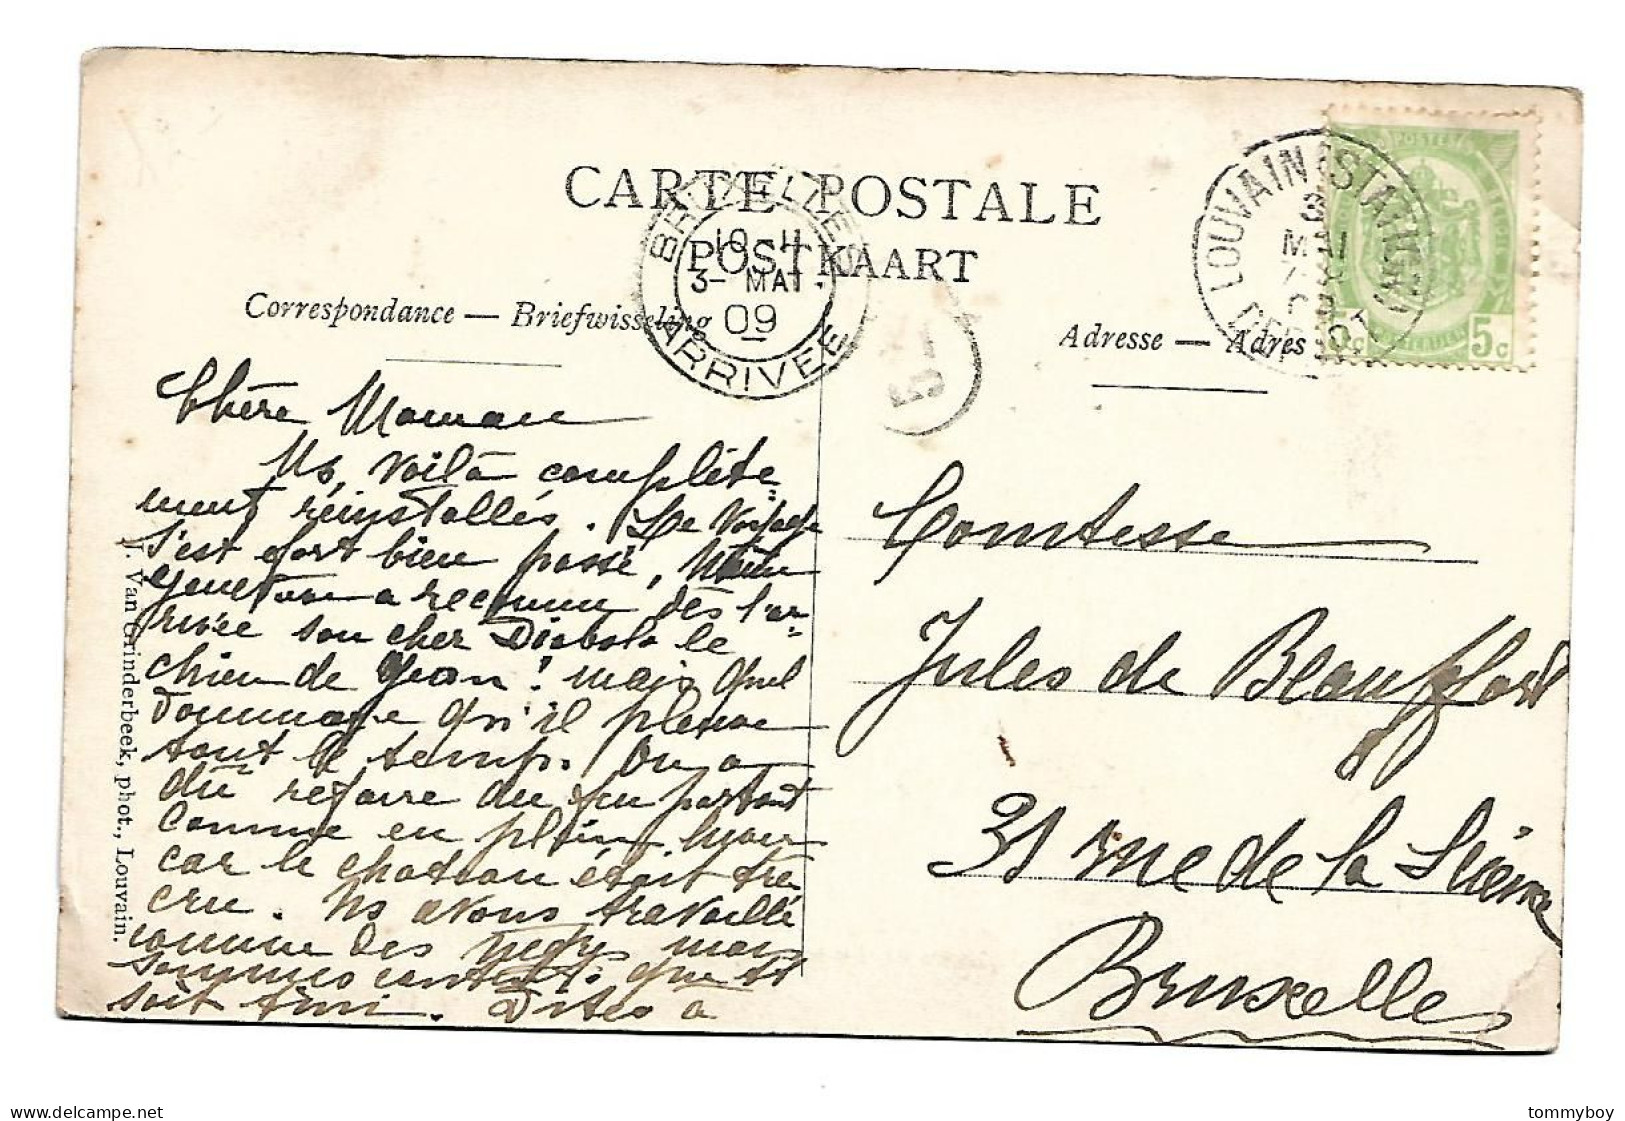 CARTE POSTALE
POSTKAART
Correspondance — Briefwisseling
Adresse — Adres
BRUXELLES
10-11
3- MAI
09
ARRIVÉE
LOUVAIN (STATION)
3
MAI
DEPART
5
POSTEN
5c
Chère Maman
Ns voilà complète=
ment réinstallés. Le voyage
s'est fort bien passé,
a reconnu dès l'ar=
rivée son cher Diabolo le
chien de Jean! mais quel
dommage qu'il pleuve
tout le temps. On a
dû refaire du feu partout
comme en plein hyver
car le chateau était très
cru. Ns avons travaillé
comme des nègres mais
sommes contents que tt
soit fini. Dites à
Comtesse
Jules de Beauffort
31 rue de la Science
Bruxelles
J. Van Grinderbeek, phot., Louvain.
delcampe.net
tommyboy